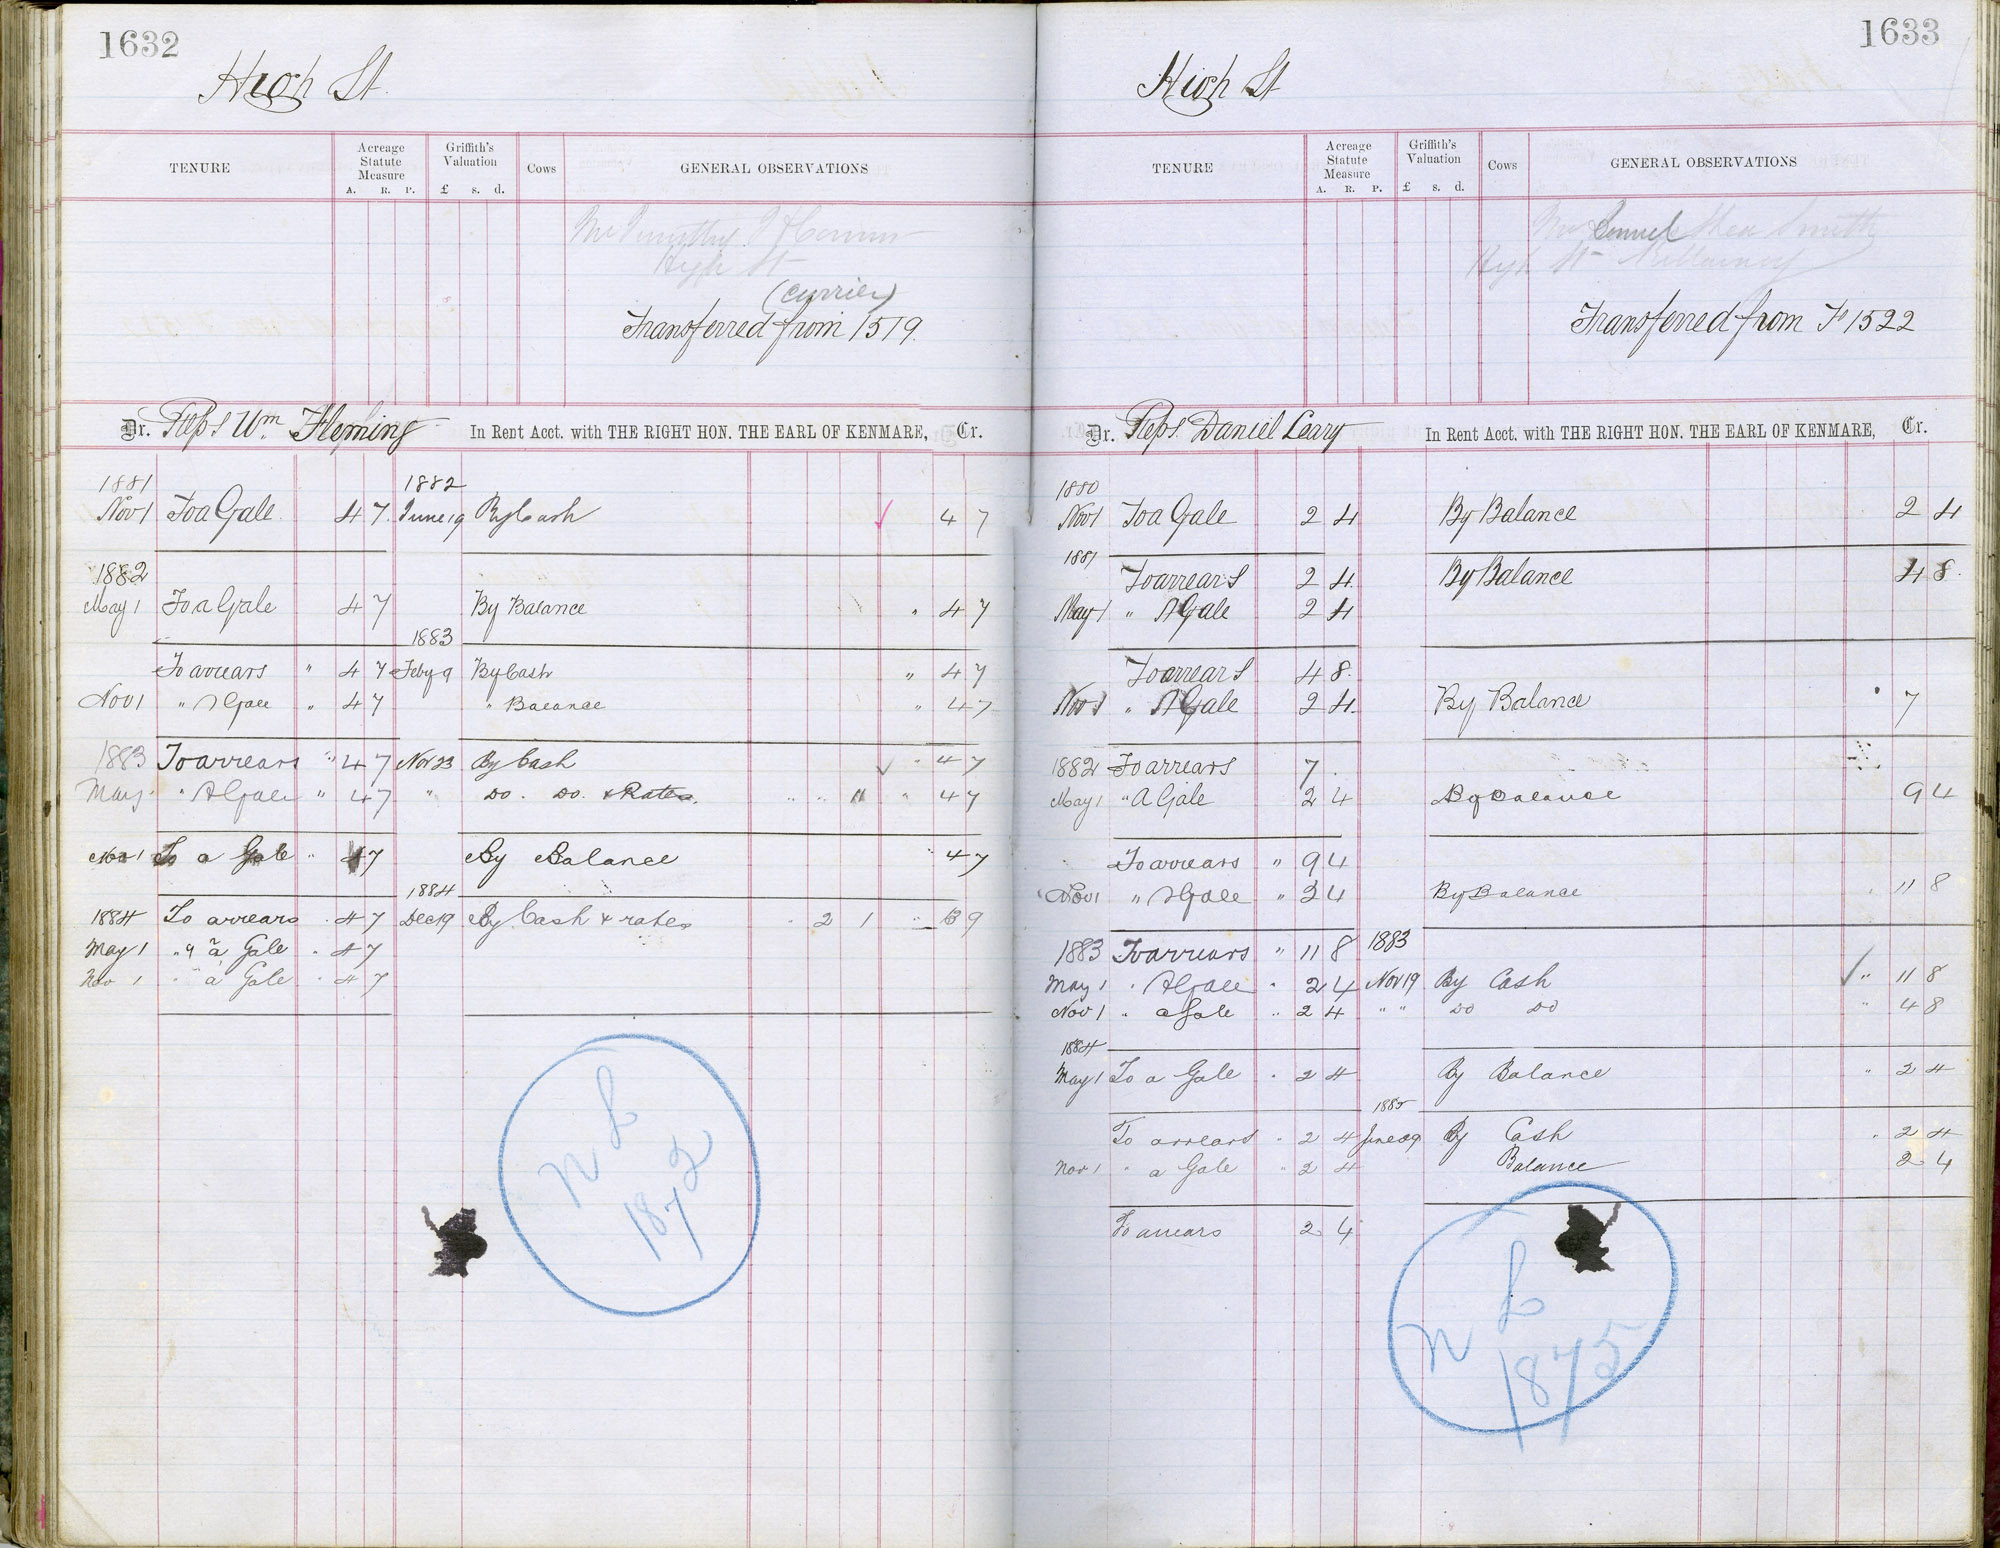 1632
High St.
TENURE
Acreage Statute Measure
A. R. P.
Griffith's Valuation
£ s. d.
Cows
GENERAL OBSERVATIONS
High St
(Currier)
Transferred from 1519.
Dr. Reps Wm. Fleming In Rent Acct. with THE RIGHT HON. THE EARL OF KENMARE, Cr.
1881 1882
Nov 1 To a Gale 4 7 June 19 By Cash 4 7
1882
May 1 To a Gale 4 7 By Balance " 4 7
1883
To arrears " 4 7 Feby 9 By Cash " 4 7
Nov 1 " A Gale " 4 7 " Balance " 4 7
1883 To arrears " 4 7 Nov 23 By Cash " 4 7
May " A Gale " 4 7 " Do. Do. & Rates. " " " " 4 7
Nov 1 To a Gale " 4 7 By Balance " 4 7
1884
1884 To arrears " 4 7 Dec 19 By Cash & rates " 2 1 " 13 9
May 1 " a Gale " 4 7
Nov 1 " a Gale " 4 7
N L
1872
1633
High St
TENURE
Acreage Statute Measure
A. R. P.
Griffith's Valuation
£ s. d.
Cows
GENERAL OBSERVATIONS
Shea Smith
High St Killarney
Transferred from Fo 1522
Dr. Reps. Daniel Leary In Rent Acct. with THE RIGHT HON. THE EARL OF KENMARE, Cr.
1880
Nov 1 To a Gale 2 4 By Balance 2 4
1881
To arrears 2 4 By Balance 4 8
May 1 " A Gale 2 4
To arrears 4 8
Nov 1 " A Gale 2 4 By Balance 7
1882 To arrears 7
May 1 " A Gale 2 4 By Balance 9 4
To arrears " 9 4
Nov 1 " A Gale " 2 4 By Balance " 11 8
1883 To arrears " 11 8 1883
May 1 " A Gale " 2 4 Nov 19 By Cash " 11 8
Nov 1 " a Gale " 2 4 " " Do Do " 4 8
1884
May 1 To a Gale " 2 4 By Balance " 2 4
1885
To arrears " 2 4 June 29 By Cash " 2 4
Nov 1 " a Gale " 2 4 Balance 2 4
To arrears 2 4
N L
1875